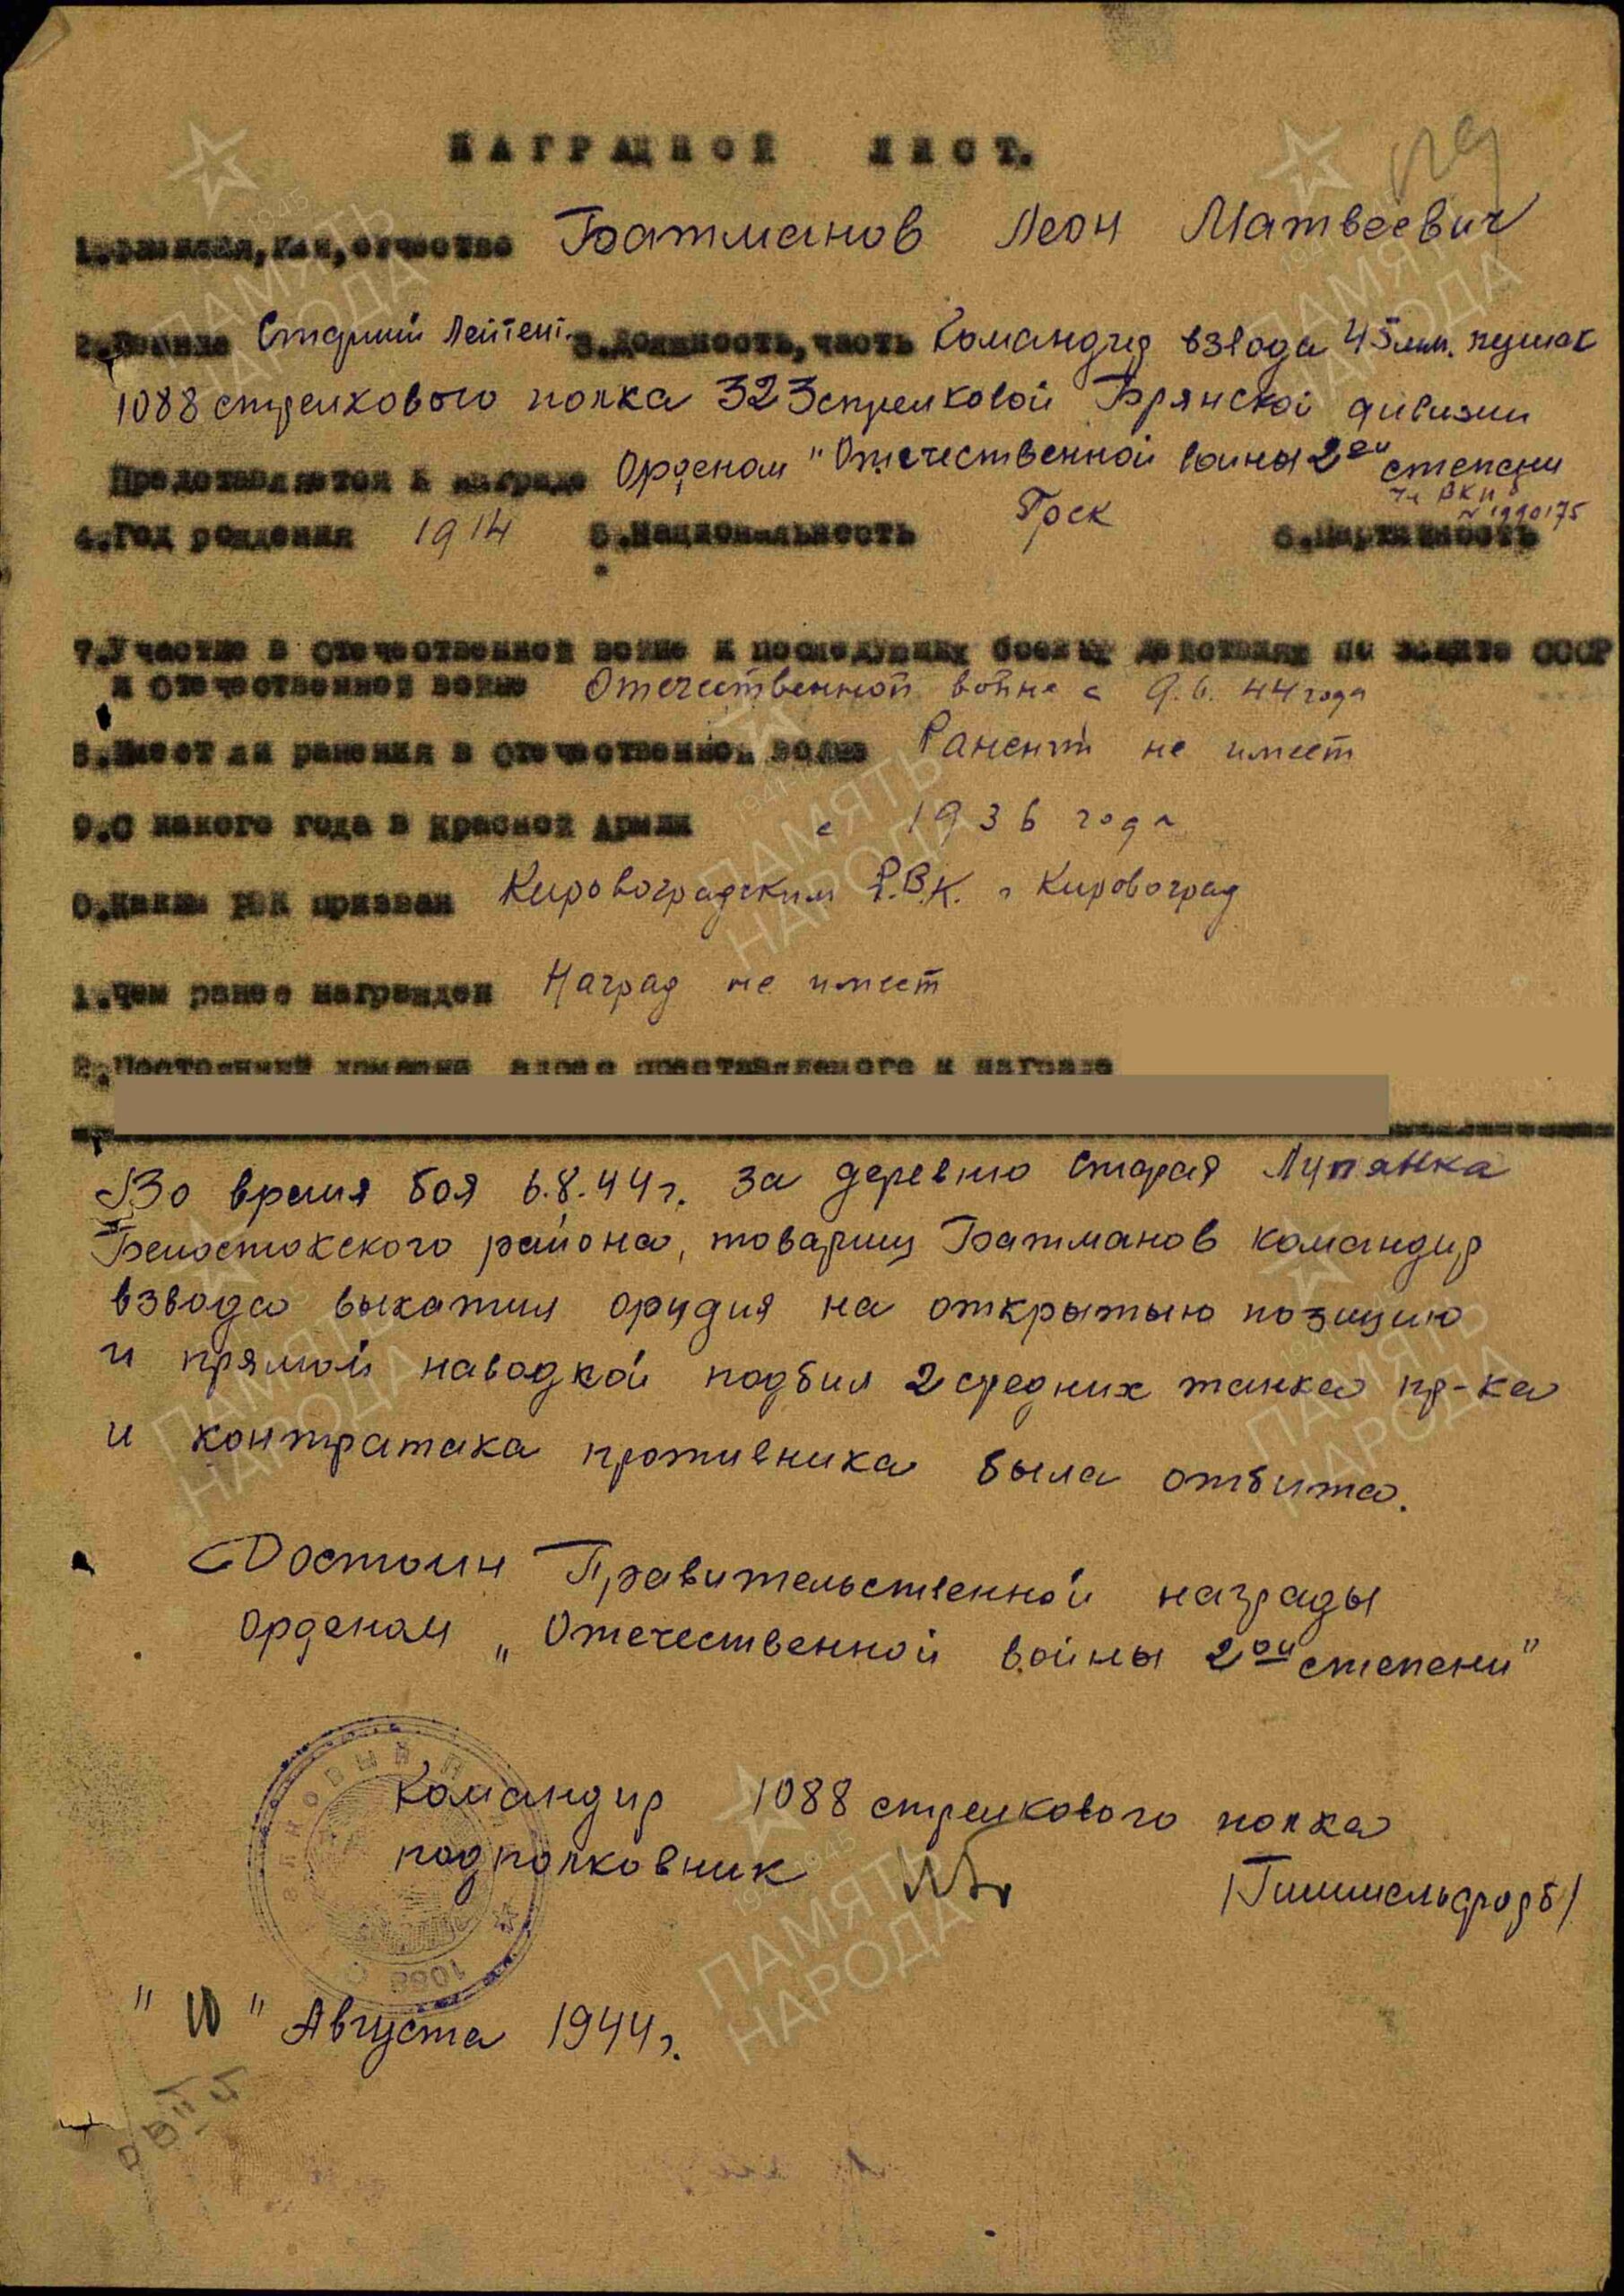 НАГРАДНОЙ ЛИСТ.
1.Фамилия, имя, отчество Батманов Леон Матвеевич
2.Звание Старший Лейтент. 3.Должность, часть Командир взвода 45мм. пушак
1088 стрелкового полка 323 стрелковой Брянской дивизии
Представляется к награде Орденом "Отечественной войны 2ой степени
чл ВКП б
N 1990175
4.Год рождения 1914 5.Национальность Грек 6.Партийность
7.Участие в отечественной войне и последующих боевых действиях по защите СССР
и отечественной войне Отечественной войне с 9.6.44 года
8.Имеет ли ранения в отечественной войне Ранений не имеет
9.С какого года в Красной Армии с 1936 года
0.Каким РВК призван Кировоградским Р.В.К. г Кировоград
1.Чем ранее награжден Наград не имеет
2.Постоянный домашний адрес преставляемого к награде
Во время боя 6.8.44г. за деревню Старая Лупянка
Белостокского района, товарищ Батманов командир
взвода выкатил орудия на открытую позицию
и прямой наводкой подбил 2 средних танка пр-ка
и контратака противника была отбита.
Достоин Правительственной награды
Орденом „Отечественной войны 2ой степени"
Командир 1088 стрелкового полка
подполковник
"10" Августа 1944г.
1088
ПАМЯТЬ НАРОДА
1941-1945